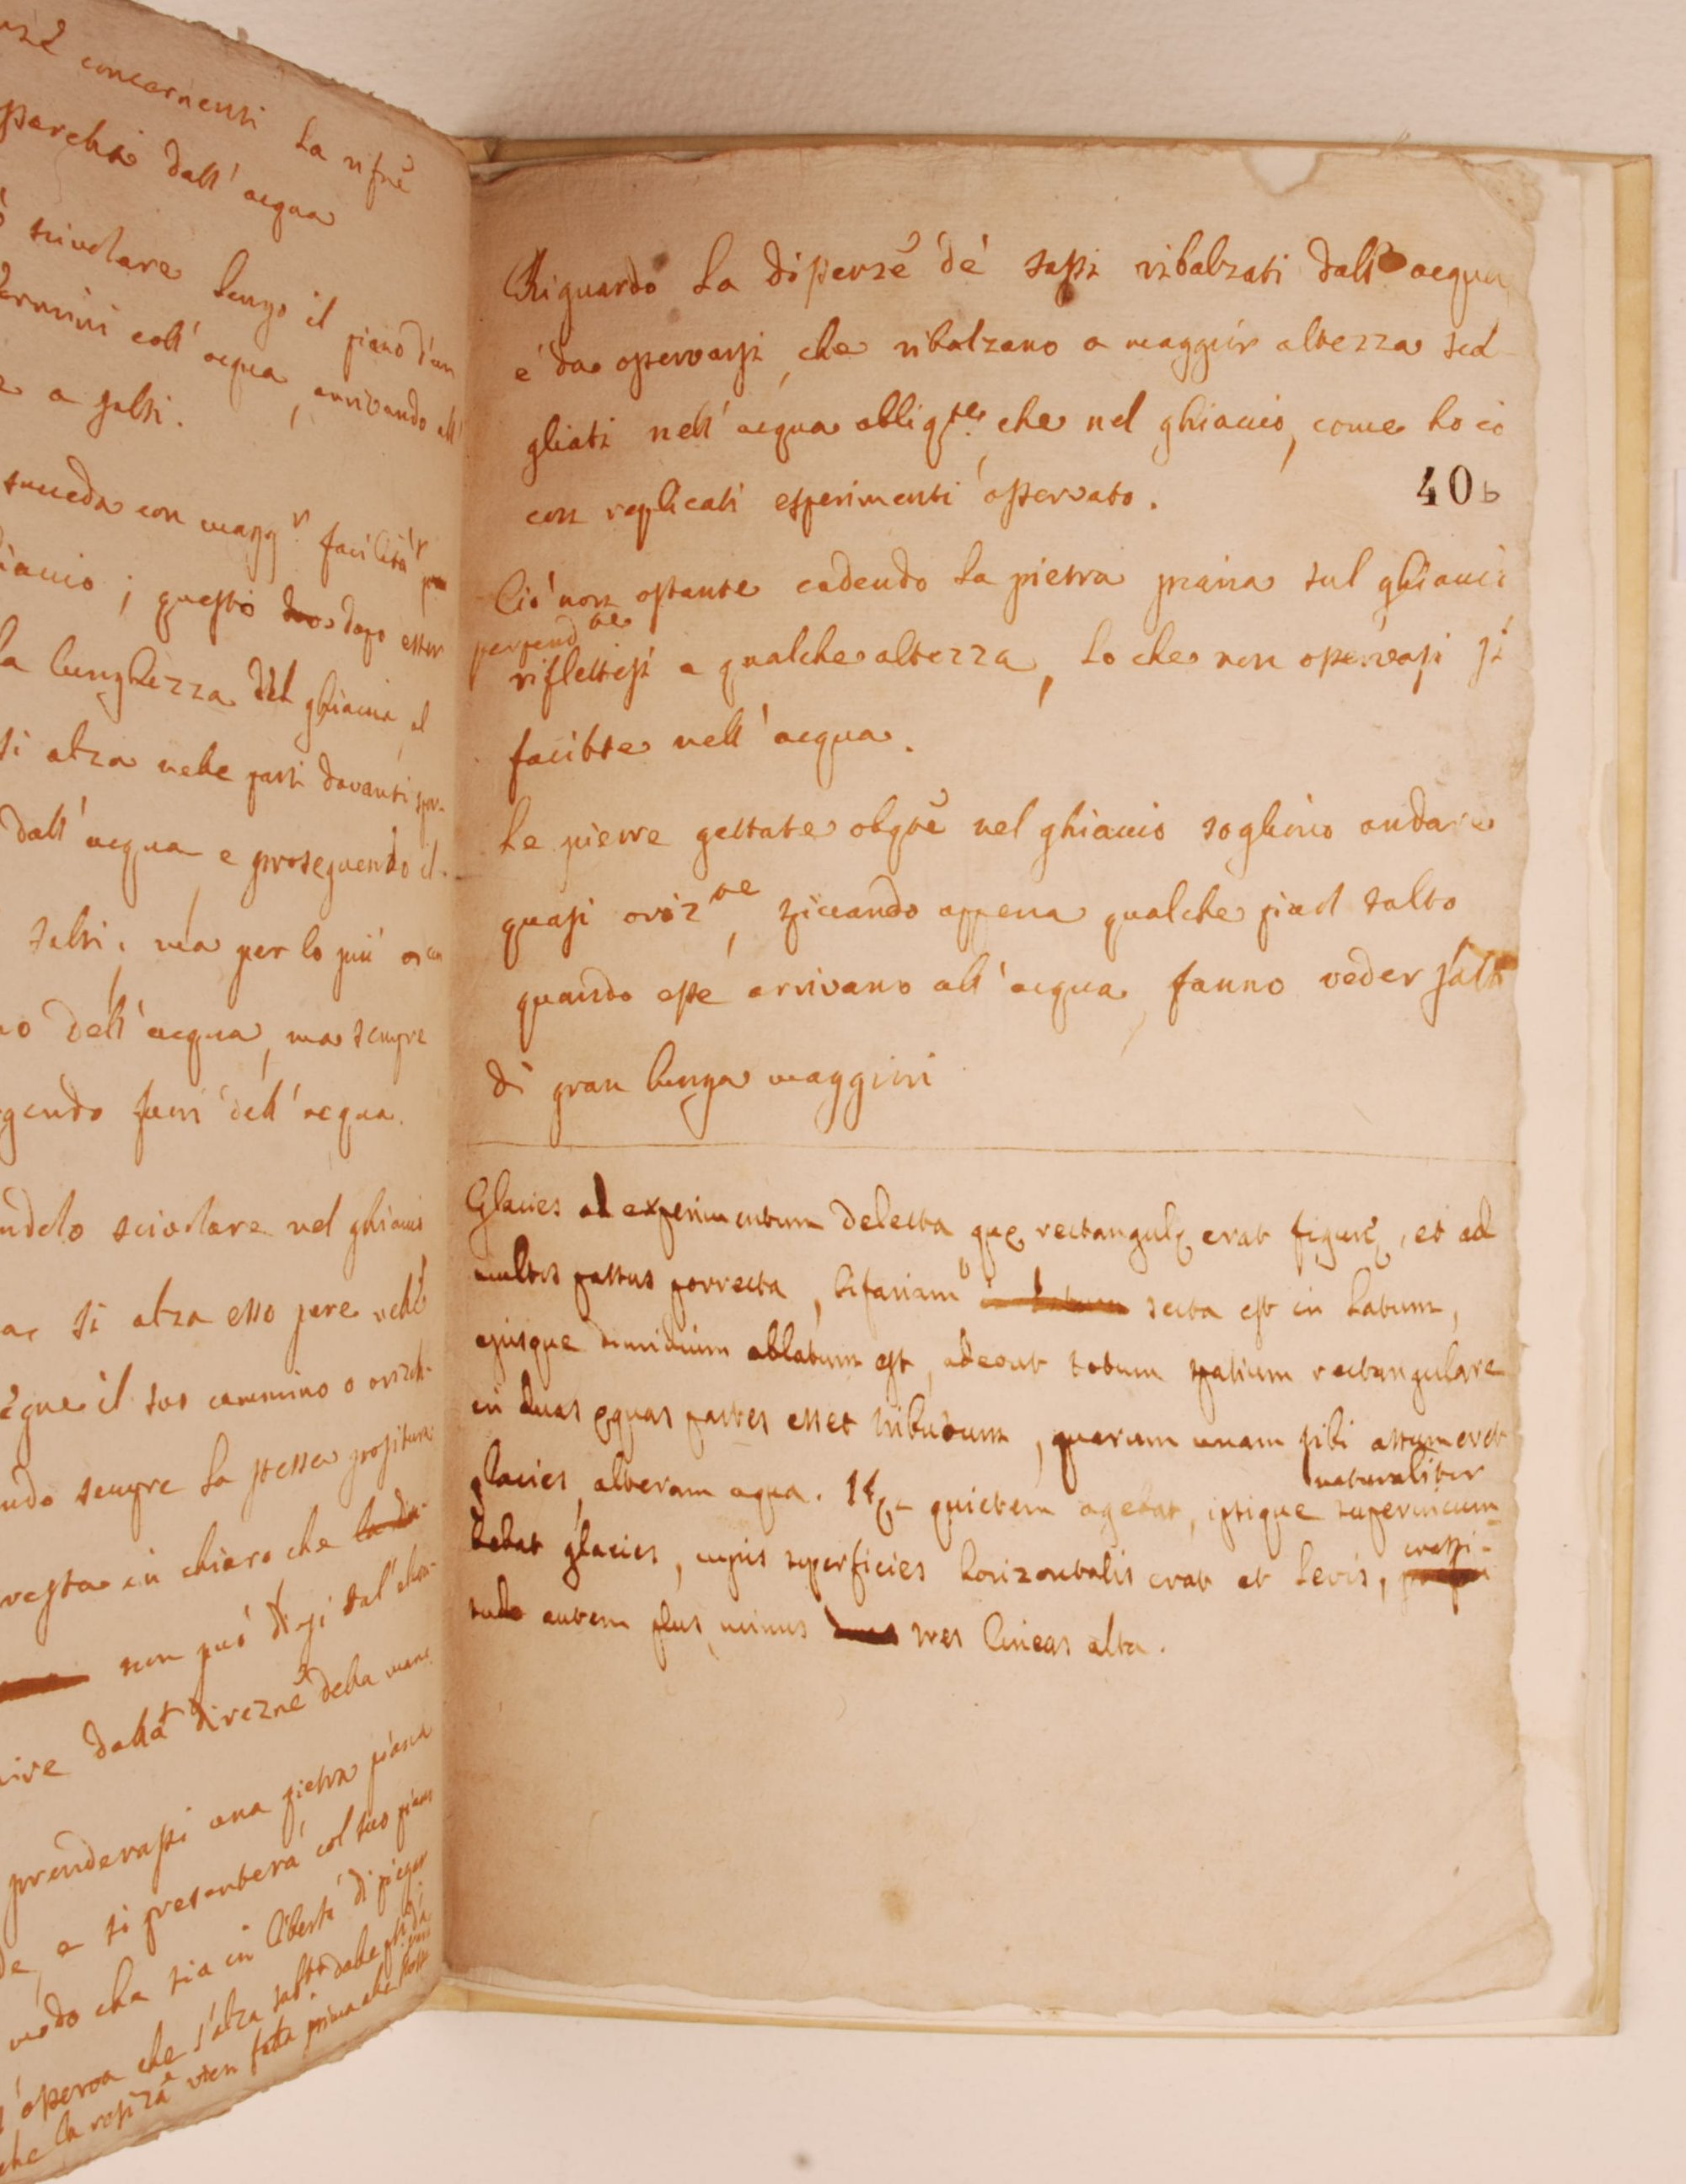 concernenti la rifne
dall' acqua
scivolare lungo il piano d'un
coll' acqua, arrivando all'
a salti.
succeda con magg.r facilità
questo dopo esser
la lunghezza del ghiaccio, el
si alza nelle parti davanti
dall' acqua e proseguendo il
salti, ma per lo più
dell' acqua, ma sempre
fuori dell' acqua.
scivolare nel ghiaccio
si alza esso pure nelle
il suo cammino o orizzle
sempre la stessa positura
resta in chiaro che la di-
non può dirsi tal
dalla direzne della mano
prenderassi una pietra piana
e si presenterà col suo piano
modo che sia in libertà di piegar
osserva che s'alza
che la vien fatta prima che
Riguardo la differze de' sassi ribalzati dall' acqua
è da osservarsi, che ribalzano a maggior altezza sca-
gliati nell' acqua obliqte, che nel ghiaccio, come ho io
con replicati esperimenti osservato.
40b
Ciò non ostante cadendo la pietra piana sul ghiaccio
perpend.te
riflettesi a qualche altezza, lo che non osservasi sì
facilte nell' acqua.
Le pietre gettate oblqte nel ghiaccio sogliono andare
quasi orizte, spiccando appena qualche picol salto
quando esse arrivano all' acqua, fanno veder salti
di gran lunga maggiori
Glacies ad experimentum delecta, quę rectangulę erat figurę, et ad
multos passus porrecta, bifariam secta est in latum,
ejusque dimidium ablatum est, adeout totum spatium rectangulare
in duas ęquas partes esset tributum, quarum unam sibi assumeret
glacies, alteram aqua. Hęc quietem agebat, ipsique
naturaliter
superincum-
bebat glacies, cujus superficies horizontalis erat et levis,
crassi-
tudo autem plus, minus tres lineas alta.